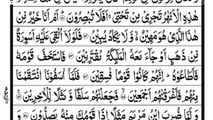 هٰذِهِ الْاَنْهٰرُ تَجْرِيْ مِنْ تَحْتِيْ ۚ اَفَلَا تُبْصِرُوْنَ ۝ اَمْ اَنَا خَيْرٌ مِّنْ
هٰذَا الَّذِيْ هُوَ مَهِيْنٌ ۙ وَّلَا يَكَادُ يُبِيْنُ ۝ فَلَوْلَاۤ اُلْقِيَ عَلَيْهِ اَسْوِرَةٌ
مِّنْ ذَهَبٍ اَوْ جَآءَ مَعَهُ الْمَلٰٓئِكَةُ مُقْتَرِنِيْنَ ۝ فَاسْتَخَفَّ قَوْمَهٗ
فَاَطَاعُوْهُ ؕ اِنَّهُمْ كَانُوْا قَوْمًا فٰسِقِيْنَ ۝ فَلَمَّآ اٰسَفُوْنَا انْتَقَمْنَا
مِنْهُمْ فَاَغْرَقْنٰهُمْ اَجْمَعِيْنَ ۝ فَجَعَلْنٰهُمْ سَلَفًا وَّمَثَلًا لِّلْاٰخِرِيْنَ ۝
وَلَمَّا ضُرِبَ ابْنُ مَرْيَمَ مَثَلًا اِذَا قَوْمُكَ مِنْهُ يَصِدُّوْنَ ۝